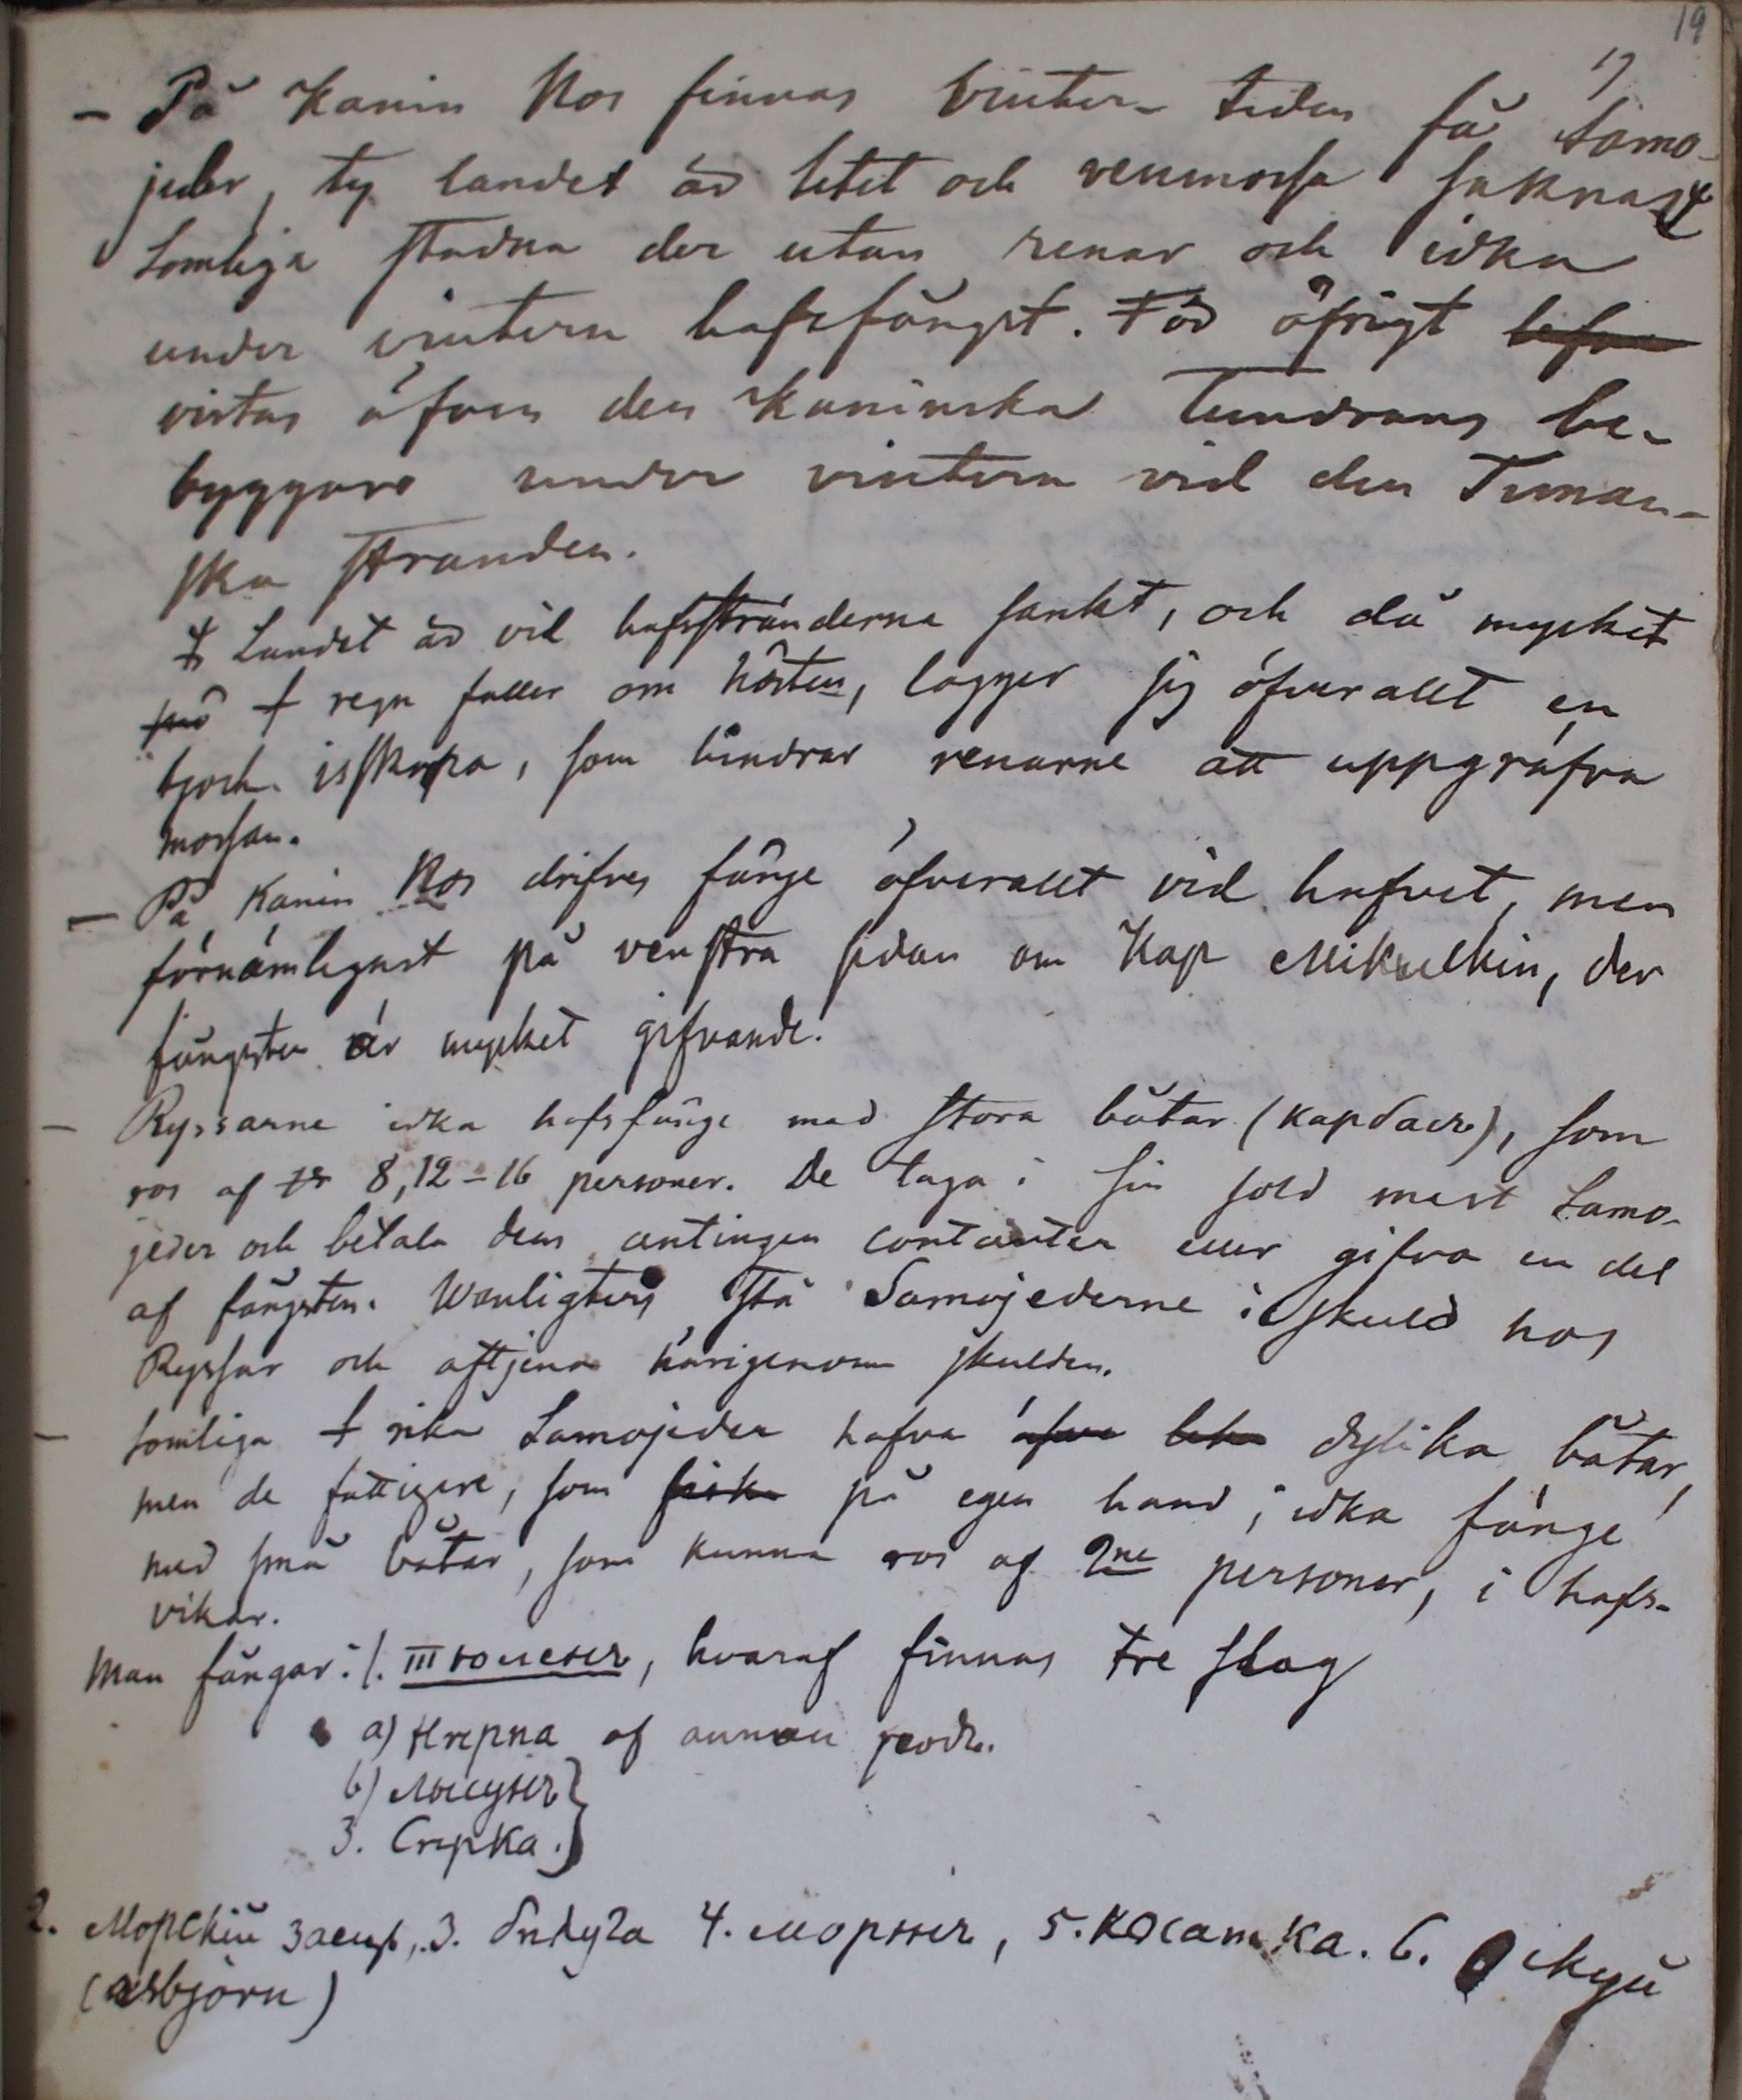 19
17
– På Kanin Nos finnas vinter-tiden få Samo-
jeder, ty landet är litet och renmossa saknas ‡
Somliga stadna der utan renar och idka
under vintern hafsfångst. För öfrigt
vistas äfven den Kaninska Tundrans be-
byggare under vintern vid den Timan-
ska stranden.
‡ Landet är vid hafsstränderna sankt, och då mycket
snö † regn faller om hösten, lägger sig öfverallt en
tjock isskorpa, som hindrar renarne att uppgräfva
mossan.
– På Kanin Nos drifves fånge öfverallt vid hafvet, men
förnämligast på venstra sidan om Kap Mikulkin, der
fångsten är mycket gifvande.
– Ryssarne idka hafsfånge med stora båtar (карбасъ), som
ros af 8, 12–16 personer. De taga i sin sold mest Samo-
jeder och betala dem antingen contanter eller gifva en del
af fångsten. Wanligtvis stå Samojederne i skuld hos
Ryssar och aftjena härigenom skulden.
– Somliga † rika Samojeder hafva äfven dylika båtar,
men de fattigare, som fiska på egen hand, idka fånge
med små båtar, som kunna ros af 2ne personer, i hafs-
vikar.
Man fångar: 1. Тюлень, hvaraf finnas tre slag
a) Нерпа af annan
b) Лысунъ }
3. Серка. }
2. Морскій заецъ, 3. бѣлуга 4. моржъ, 5. косатка. 6. ошкуй
(isbjörn)